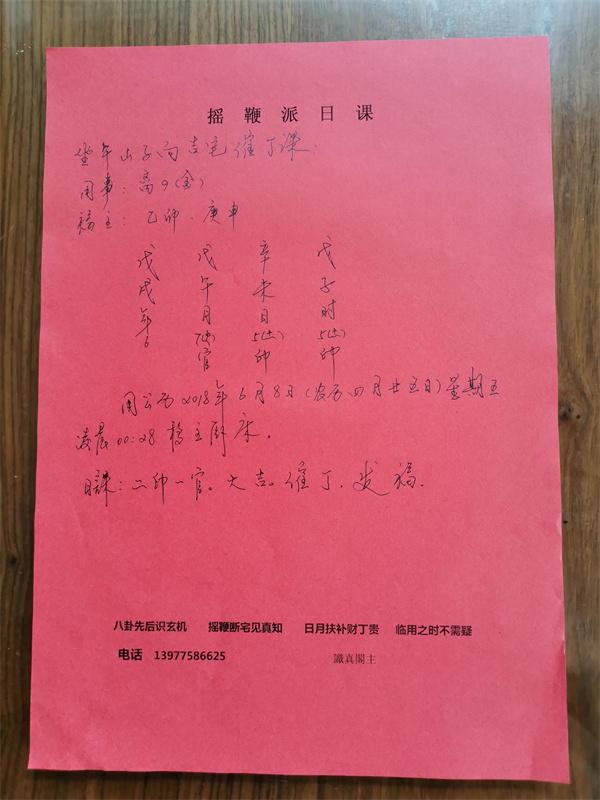 摇鞭派日课
坐午山子向吉宅催丁课:
用事:离9(金)
福主:乙卯、庚申
戊 戊 辛 戊
戌 午 未 子
年 月 日 时
6 7(火) 5(土) 5(土)
官 卯 卯
用公历2018年6月8日(农历四月廿五日)星期五
凌晨00:28 移主厨床。
日课:二卯一官。大吉。催丁、发福.
八卦先后识玄机 摇鞭断宅见真知 日月扶补财丁贵 临用之时不需疑
电话 13977586625 識真閣主